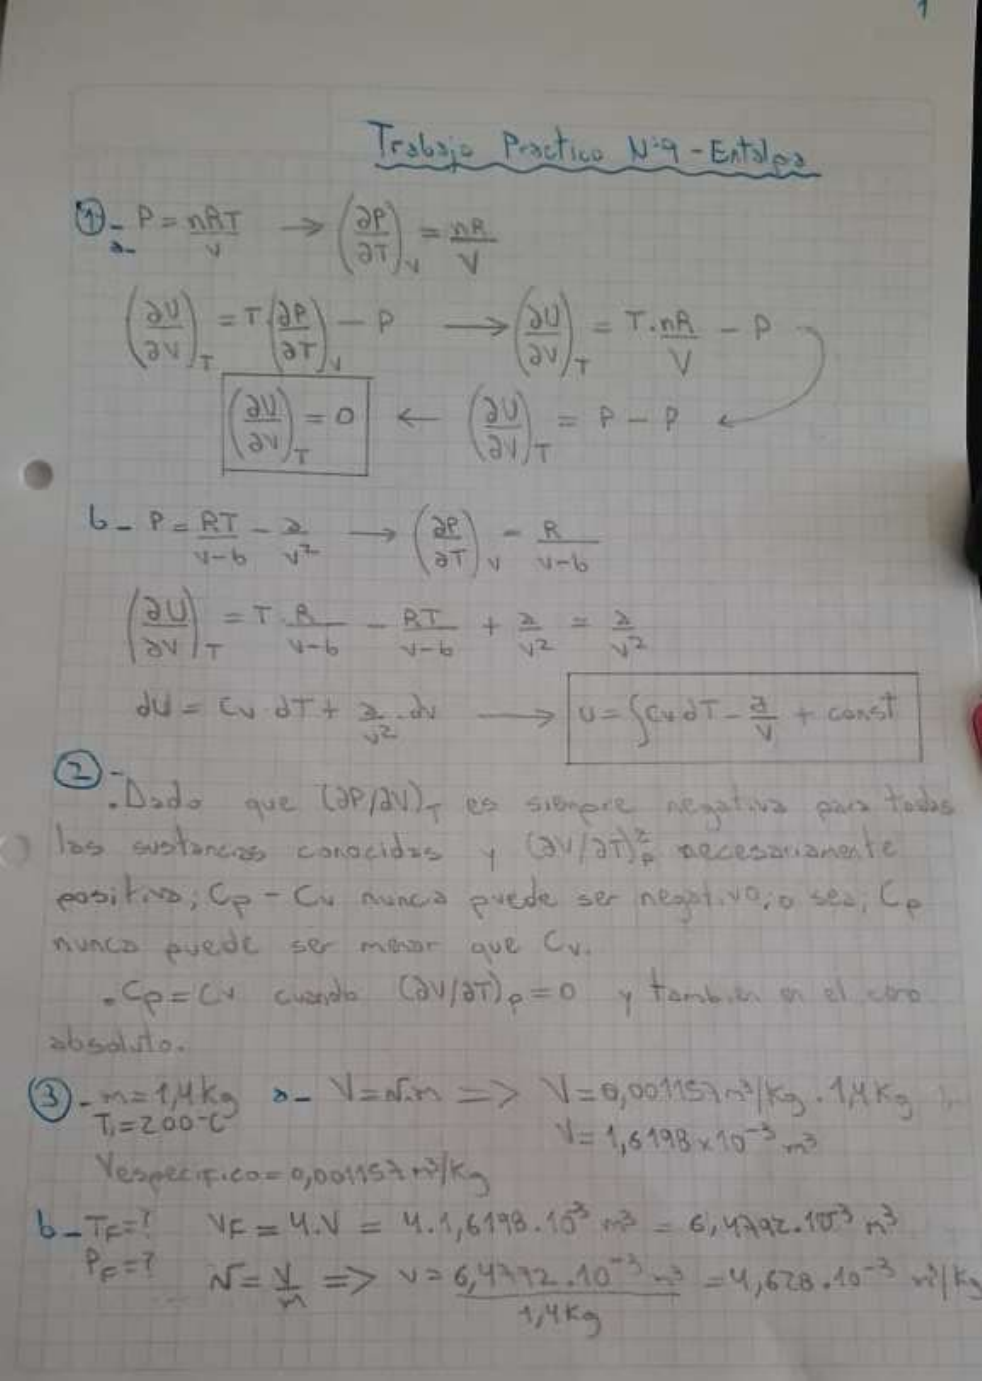 1
Trabajo Practico N°9 - Entalpa
①- P = nRT/V → (∂P/∂T)_V = nR/V
a-
(∂U/∂V)_T = T (∂P/∂T)_V - P → (∂U/∂V)_T = T.nR/V - P
(∂U/∂V)_T = 0 ← (∂U/∂V)_T = P - P
b- P = RT/(v-b) - a/v² → (∂P/∂T)_V = R/(v-b)
(∂U/∂V)_T = T R/(v-b) - RT/(v-b) + a/v² = a/v²
dU = Cv . dT + a/v² . dv → U = ∫Cv dT - a/v + const
②-
. Dado que (∂P/∂V)_T es siempre negativa para todas
las sustancias conocidas y (∂V/∂T)²_P necesariamente
positiva; Cp - Cv nunca puede ser negativo; o sea; Cp
nunca puede ser menor que Cv.
. Cp = Cv cuando (∂V/∂T)_P = 0 y tambien en el cero
absoluto.
③- m = 1,4 kg a- V = v.m => V = 0,001157 m³/kg . 1,4 kg
T₁ = 200°C V = 1,6198 x 10⁻³ m³
Vespecifico = 0,001157 m³/kg
b- TF = ? VF = 4.V = 4.1,6198.10⁻³ m³ = 6,4792.10⁻³ m³
PF = ? v = V/m => v = 6,4792.10⁻³ m³/1,4 kg = 4,628.10⁻³ m³/kg